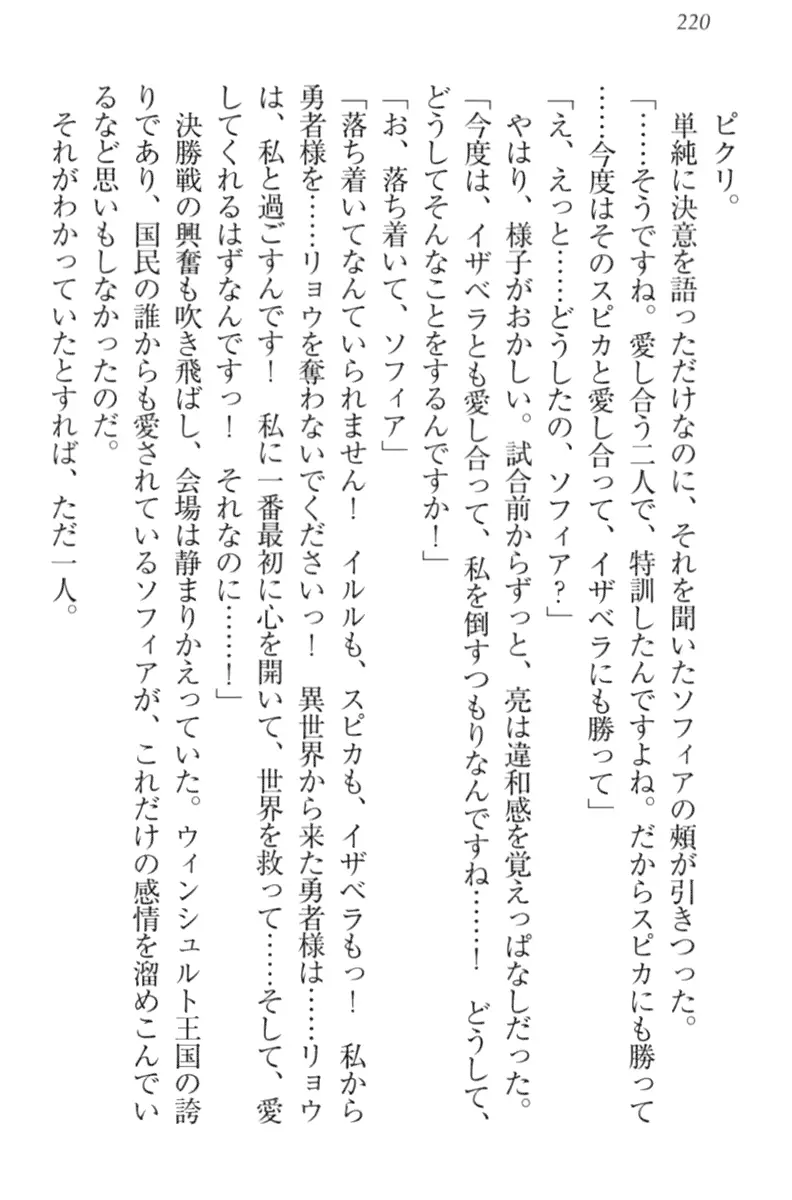 220
ピクリ。
単純に決意を語っただけなのに、それを聞いたソフィアの頬が引きつった。
「……そうですね。愛し合う二人で、特訓したんですよね。だからスピカにも勝って
……今度はそのスピカと愛し合って、イザベラにも勝って」
「え、えっと……どうしたの、ソフィア？」
やはり、様子がおかしい。試合前からずっと、亮は違和感を覚えっぱなしだった。
「今度は、イザベラとも愛し合って、私を倒すつもりなんですね……！　どうして、
どうしてそんなことをするんですか！」
「お、落ち着いて、ソフィア」
「落ち着いてなんていられません！　イルルも、スピカも、イザベラもっ！　私から
勇者様を……リョウを奪わないでくださいっ！　異世界から来た勇者様は……リョウ
は、私と過ごすんです！　私に一番最初に心を開いて、世界を救って……そして、愛
してくれるはずなんですっ！　それなのに……！」
決勝戦の興奮も吹き飛ばし、会場は静まりかえっていた。ウィンシュルト王国の誇
りであり、国民の誰からも愛されているソフィアが、これだけの感情を溜めこんでい
るなど思いもしなかったのだ。
それがわかっていたとすれば、ただ一人。